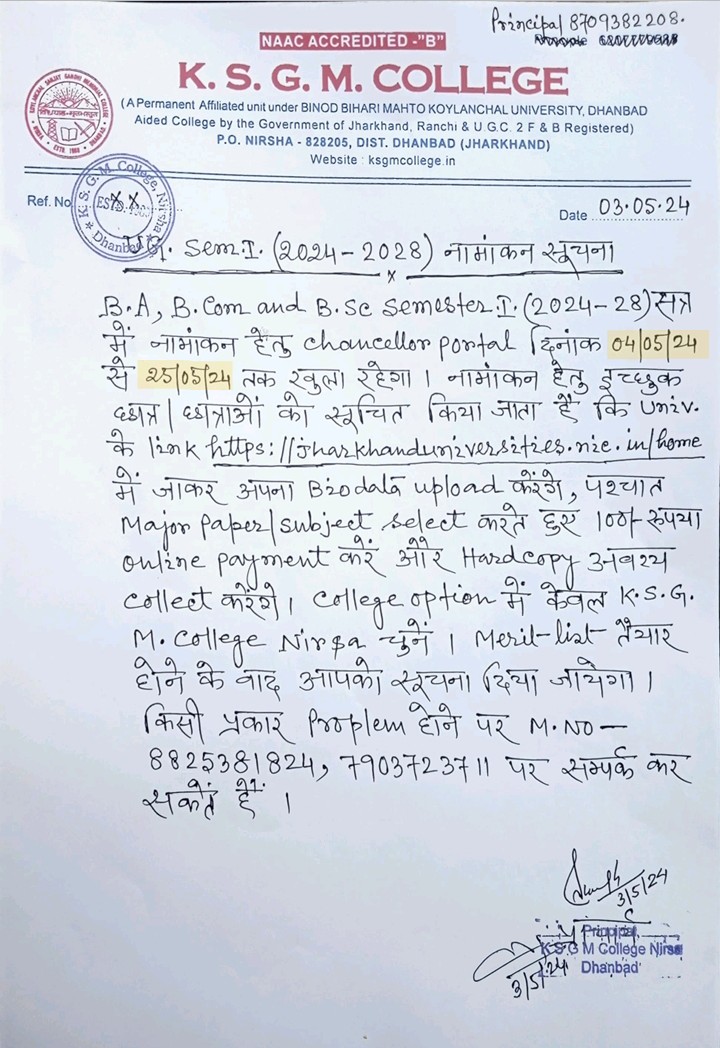 Principal 8709382208.
NAAC ACCREDITED -"B"
K. S. G. M. COLLEGE
(A Permanent Affiliated unit under BINOD BIHARI MAHTO KOYLANCHAL UNIVERSITY, DHANBAD
Aided College by the Government of Jharkhand, Ranchi & U.G.C. 2 F & B Registered)
P.O. NIRSHA - 828205, DIST. DHANBAD (JHARKHAND)
Website : ksgmcollege.in
Ref. No.
K. S. G. M. College, Nirsha
Dhanbad
Date 03.05.24
UG. Sem.I. (2024-2028) नामांकन सूचना
x
B.A, B.Com and B.Sc Semester I. (2024-28) सत्र
में नामांकन हेतु chancellor portal दिनांक 04/05/24
से 25/05/24 तक खुला रहेगा । नामांकन हेतु इच्छुक
छात्र/छात्राओं को सूचित किया जाता है कि Univ.
के link https://jharkhanduniversities.nic.in/home
में जाकर अपना Biodata upload करेंगे, पश्चात
Major paper/subject select करते हुए 100/- रुपया
online payment करें और Hardcopy अवश्य
collect करेंगे। College option में केवल K.S.G.
M. College Nirsa चुनें । Merit-list तैयार
होने के बाद आपको सूचना दिया जायेगा ।
किसी प्रकार Proplem होने पर M.NO-
8825381824, 7903723711 पर सम्पर्क कर
सकेतें हैं ।
3/5/24
Principal
K S G M College Nirsa
Dhanbad
3/5/24